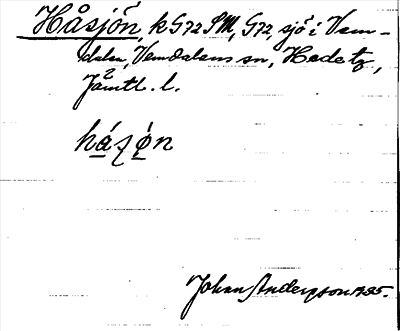 Håsjön k G72 SM, G72, sjö i Vem-
dalen, Vemdalens sn, Hede tg,
Jämtl. l.
håsjön
Johan Anderson 1935.